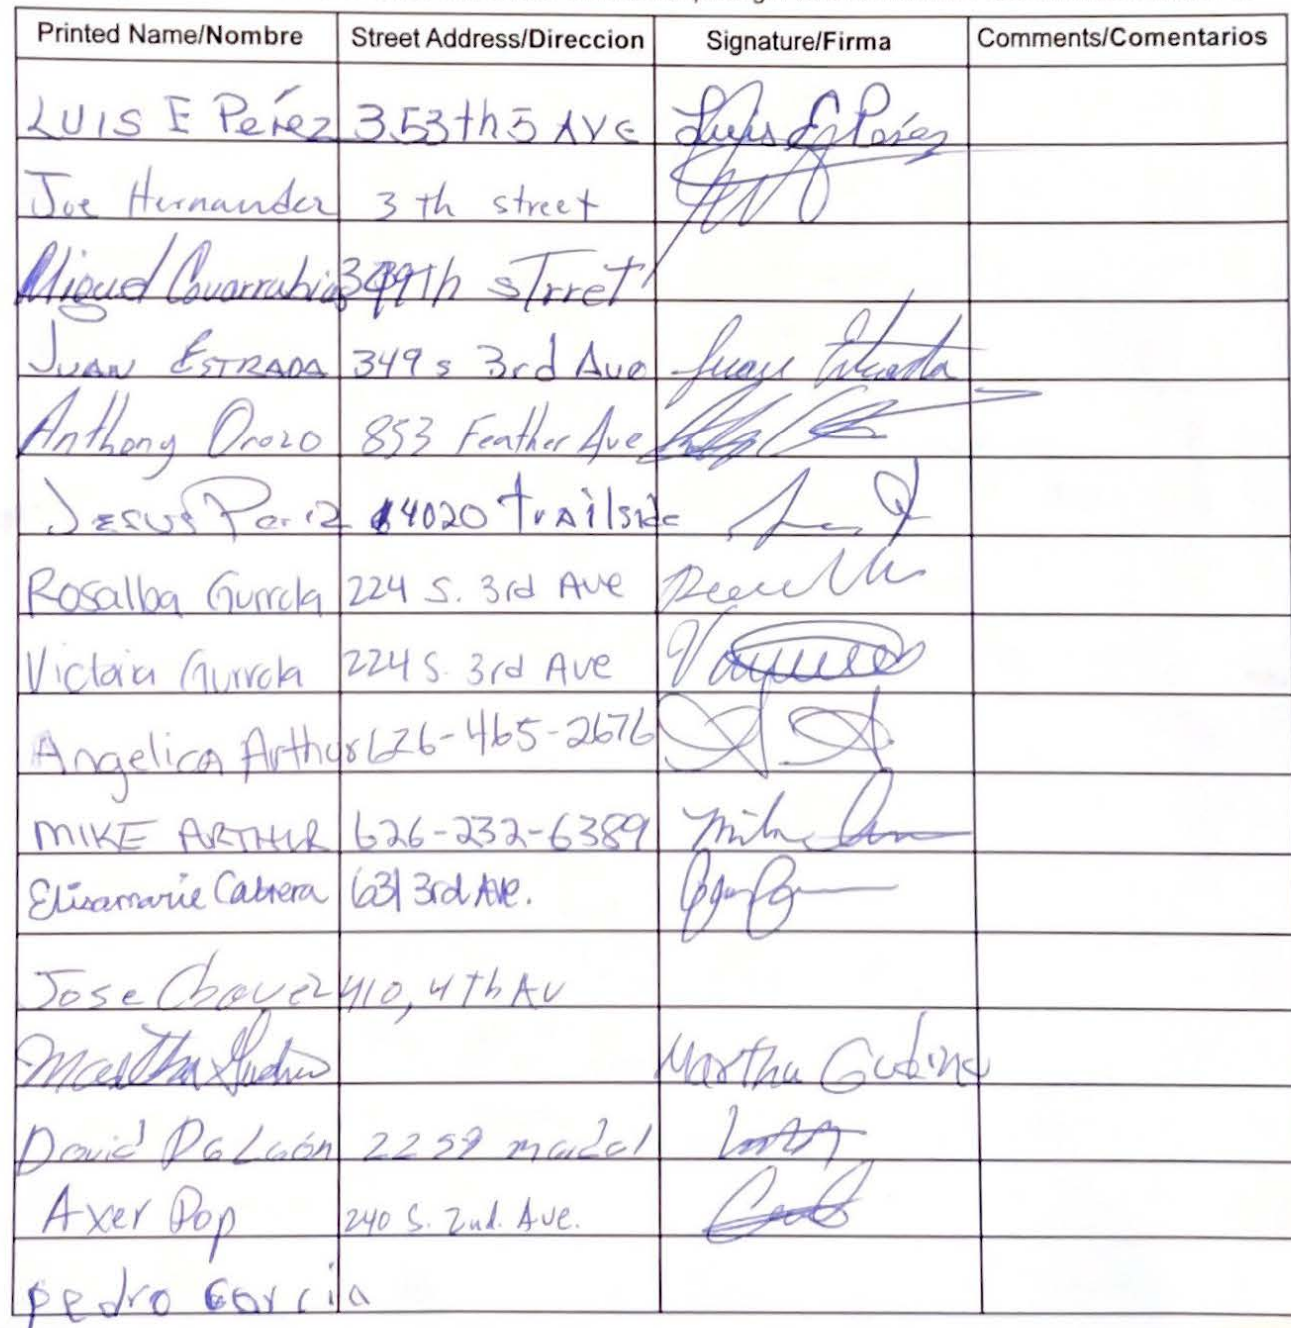 Printed Name/Nombre Street Address/Direccion Signature/Firma Comments/Comentarios
LUIS E Peréz 353th 5 AVE Luis E Peréz
Joe Hernandez 3 th street
Miguel Covarrubias 349th sTrret
JUAN ESTRADA 349 s 3rd Ave Juan Estrada
Anthony Orozo 853 Feather Ave
Jesus Pariz 14020 trailside
Rosalba Gurrola 224 S. 3rd Ave
Victoria Gurrola 224 S. 3rd Ave
Angelica Arthur 626-465-2676
MIKE ARTHUR 626-232-6389
Elisamarie Cabrera 631 3rd Ave.
Jose Chavez 410, 4th AV
Martha Gudino Martha Gudino
David De León 2259
Axer Pop 240 S. 2nd. Ave.
pedro Garcia